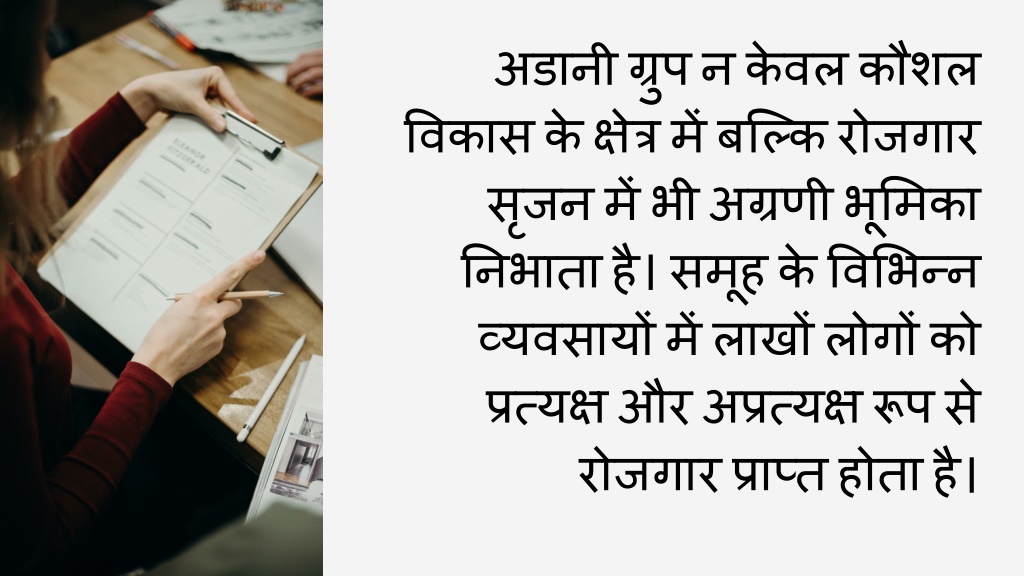 अडानी ग्रुप न केवल कौशल
विकास के क्षेत्र में बल्कि रोजगार
सृजन में भी अग्रणी भूमिका
निभाता है। समूह के विभिन्न
व्यवसायों में लाखों लोगों को
प्रत्यक्ष और अप्रत्यक्ष रूप से
रोजगार प्राप्त होता है।
ELEANOR
FITZGERALD